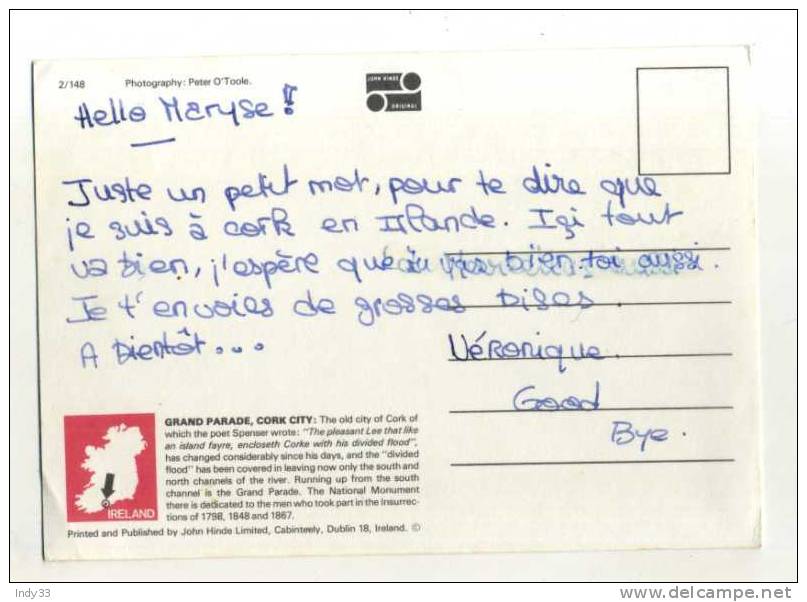 2/148 Photography: Peter O'Toole.
JOHN HINDE
ORIGINAL
Hello Maryse !
Juste un petit mot, pour te dire que
je suis à cork en Irlande. Izi tout
va bien, j'espère que tu vas bien toi aussi.
Je t'envoies de grosses bises.
A bientôt...
Véronique.
Good
Bye.
GRAND PARADE, CORK CITY: The old city of Cork of
which the poet Spenser wrote: "The pleasant Lee that like
an island fayre, encloseth Corke with his divided flood",
has changed considerably since his days, and the "divided
flood" has been covered in leaving now only the south and
north channels of the river. Running up from the south
channel is the Grand Parade. The National Monument
there is dedicated to the men who took part in the Insurrec-
tions of 1798, 1848 and 1867.
IRELAND
Printed and Published by John Hinde Limited, Cabinteely, Dublin 18, Ireland. ©
Indy33
www.delcampe.net